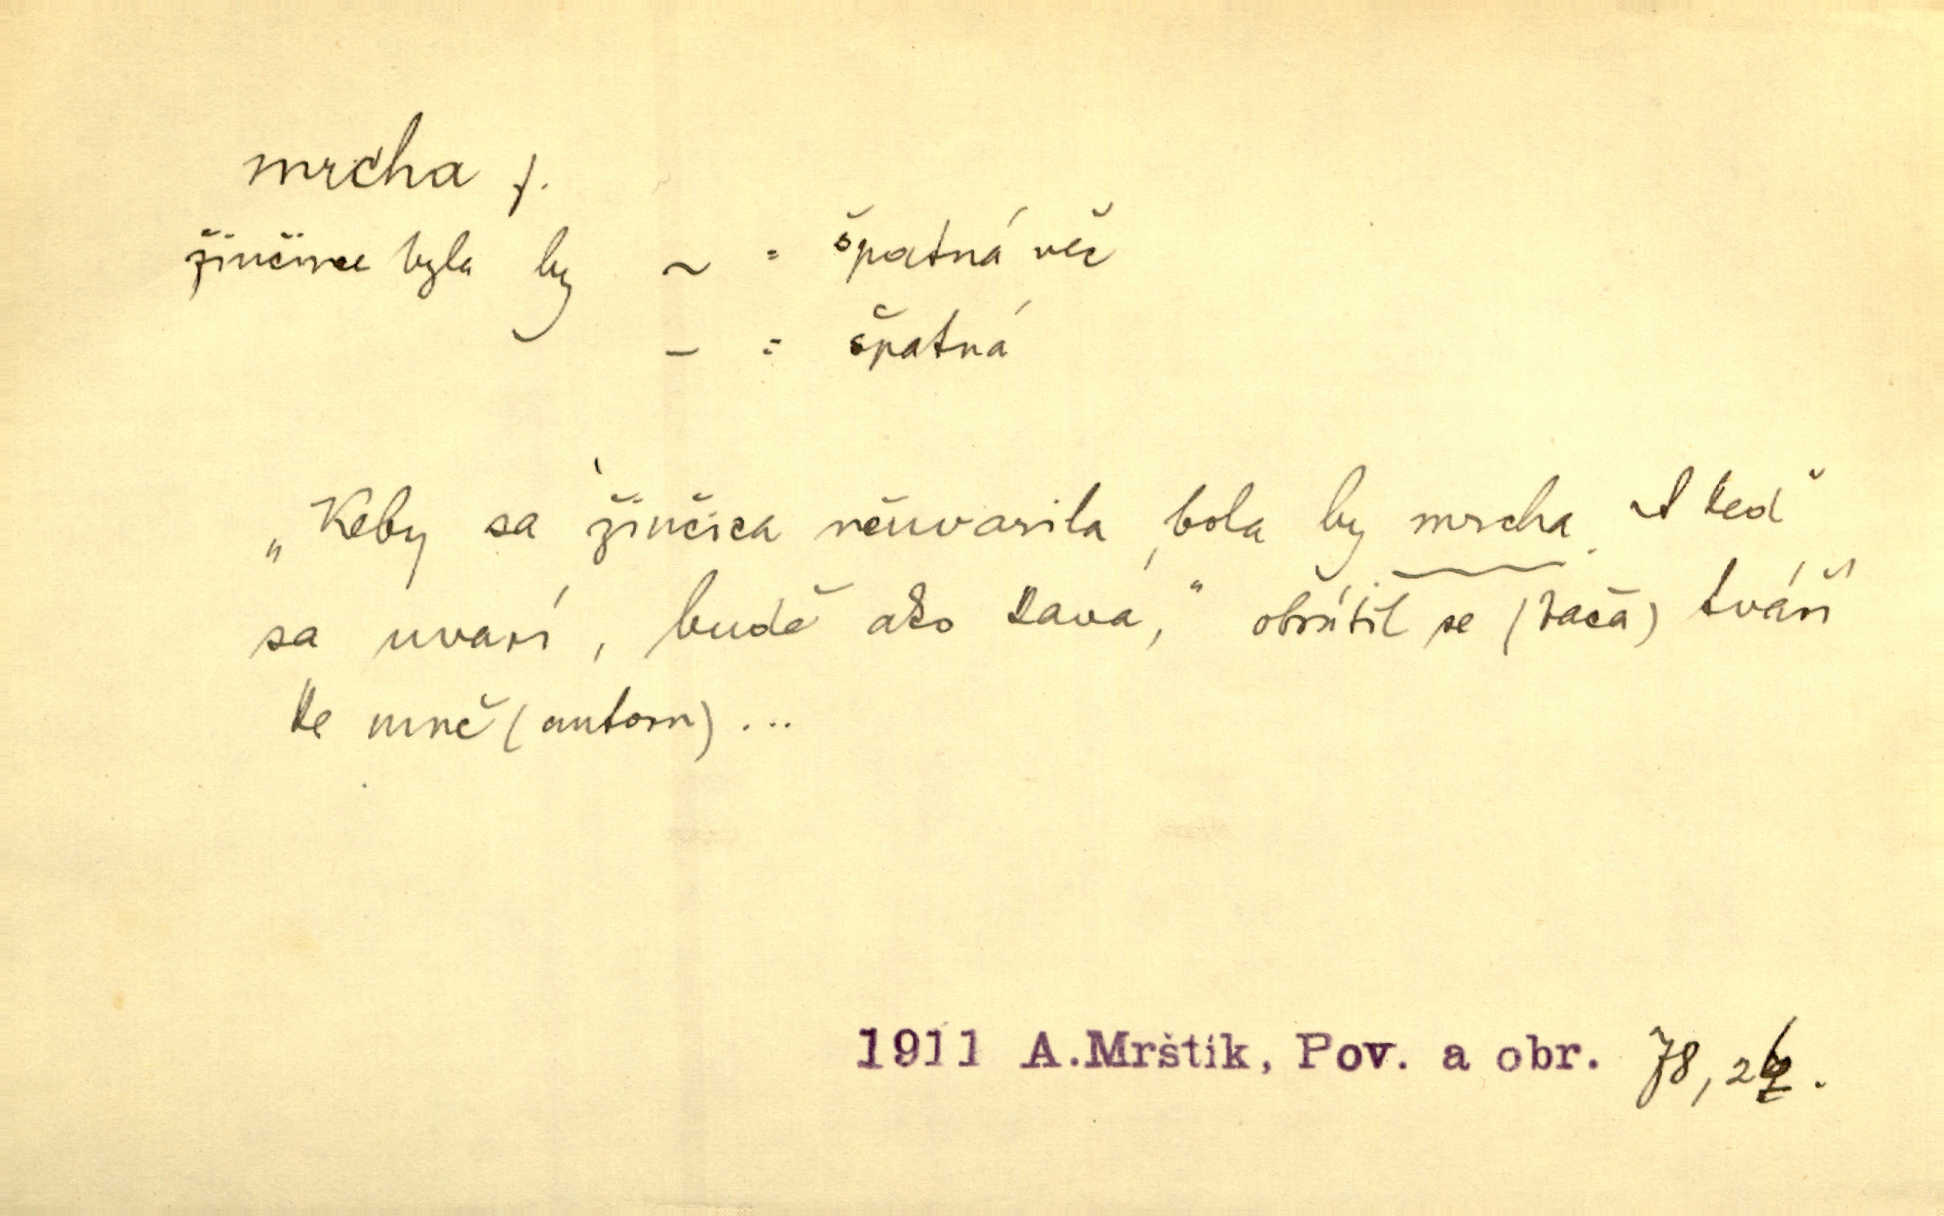 mrcha f.
žinčice byla by ~ = špatná věc
– = špatná
„Keby sa žinčica něuvarila, bola by mrcha. A keď
sa uvarí, budě ako kava," obrátil se (bača) tváří
ke mně (autorn) ...
1911 A.Mrštík, Pov. a obr. 78,